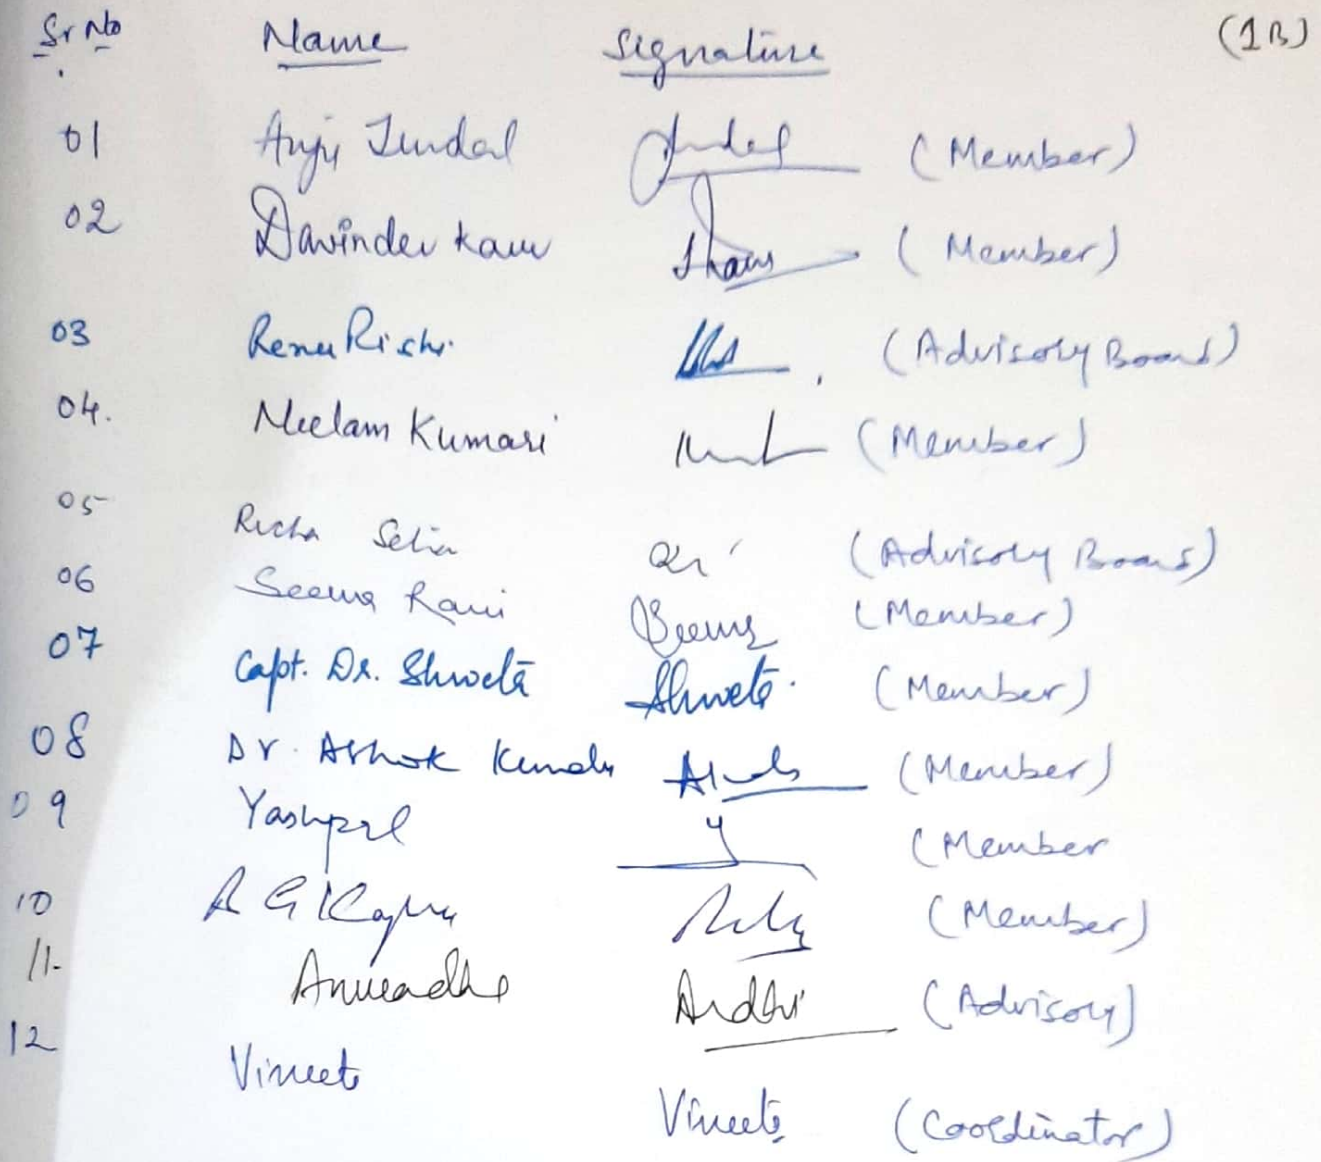 Sr No Name Signature (1B)
01 Anju Jindal (Member)
02 Davinder Kaur (Member)
03 Renu Rishi (Advisory Board)
04. Neelam Kumari (Member)
05 Richa (Advisory Board)
06 Seema Rani Seema (Member)
07 Capt. Dr. Shweta Shweta. (Member)
08 Dr. Ashok Kumar (Member)
09 Yashpal Y (Member
10 R G (Member)
11. Anuradha (Advisory)
12 Vineeta
Vineeta (Coordinator)